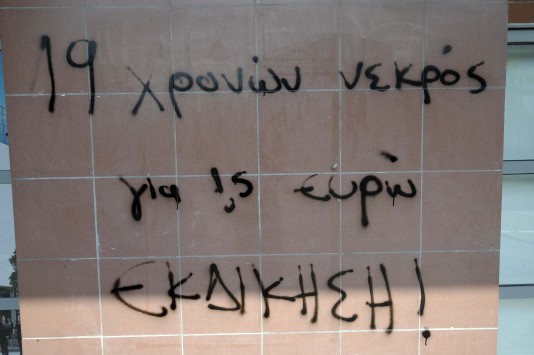 19 χρονών νεκρός
για 1,5 ευρώ
ΕΚΔΙΚΗΣΗ!